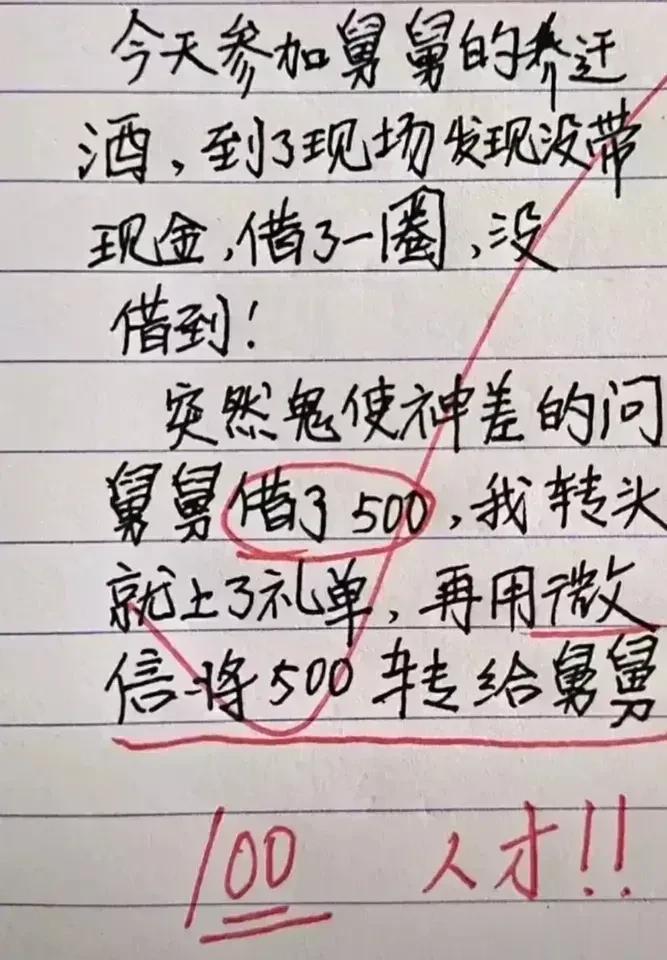 今天参加舅舅的乔迁
酒,到了现场发现没带
现金,借了一圈,没
借到!
突然鬼使神差的问
舅舅借了500,我转头
就上了礼单,再用微
信将500转给舅舅
100 人才!!